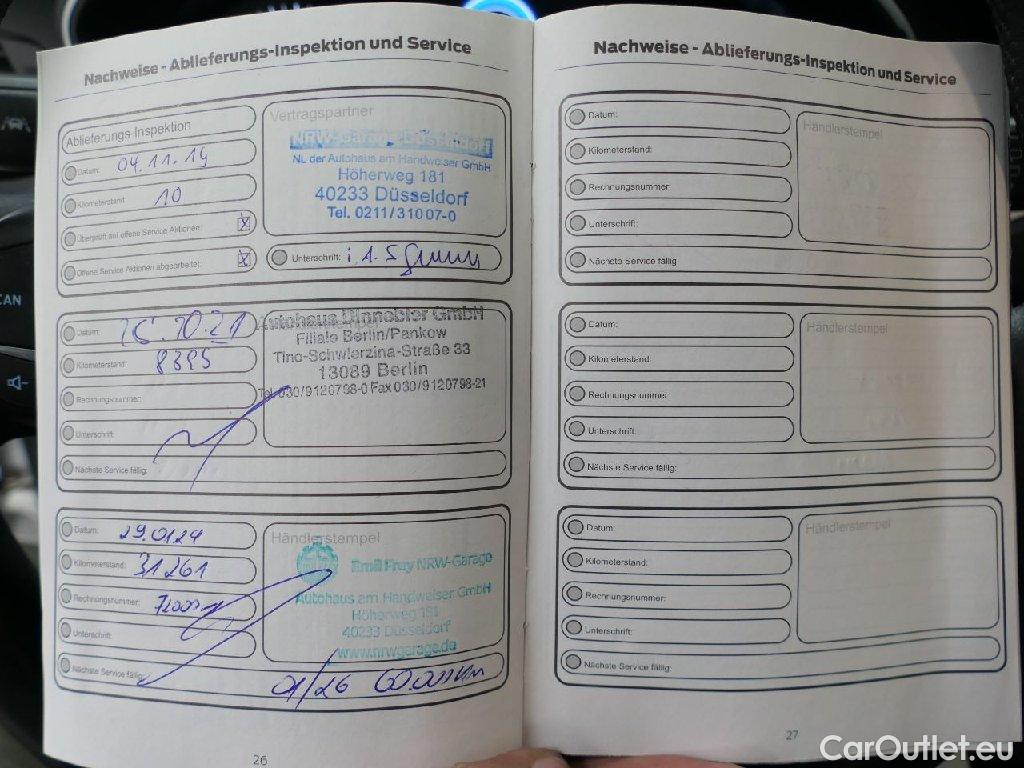 Nachweise - Ablieferungs-Inspektion und Service
Ablieferungs-Inspektion
Datum: 04.11.19
Kilometerstand: 10
Überprüft auf offene Service Aktionen: X
Offene Service Aktionen abgearbeitet: X
Vertragspartner
NRW-Garage-Düsseldorf
NL der Autohaus am Handweiser GmbH
Höherweg 181
40233 Düsseldorf
Tel. 0211/31007-0
Unterschrift: i.A.
Datum: 10.21
Kilometerstand: 8395
Rechnungsnummer:
Unterschrift:
Nächste Service fällig:
Autohaus Dinnebier GmbH
Filiale Berlin/Pankow
Tino-Schwierzina-Straße 33
13089 Berlin
Tel. 030/9120798-0 Fax 030/9120798-21
Datum: 29.0124
Kilometerstand: 31261
Rechnungsnummer:
Unterschrift:
Nächste Service fällig: 01/26 60.000km
Händlerstempel
Emil Frey NRW-Garage
Autohaus am Handweiser GmbH
Höherweg 181
40233 Düsseldorf
www.nrwgarage.de
26
Nachweise - Ablieferungs-Inspektion und Service
Datum:
Kilometerstand:
Rechnungsnummer:
Unterschrift:
Nächste Service fällig
Händlerstempel
Datum:
Kilometerstand:
Rechnungsnummer:
Unterschrift:
Nächste Service fällig:
Händlerstempel
Datum:
Kilometerstand:
Rechnungsnummer:
Unterschrift:
Nächste Service fällig:
Händlerstempel
27
CAN
CarOutlet.eu